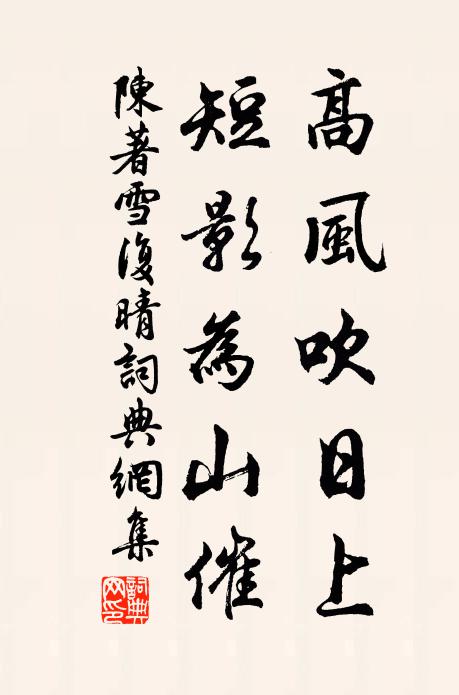 高風吹日上
短影為山催
陳著雪復晴詞典網集
詞典网印